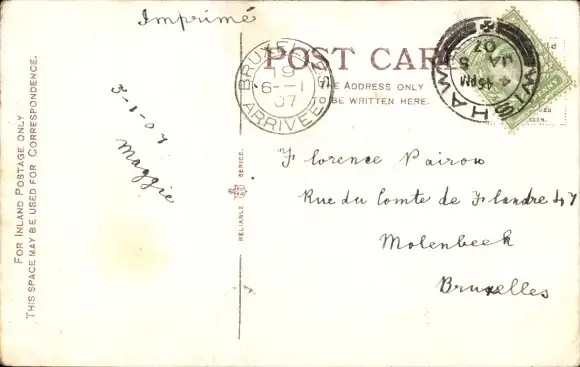 Imprimé
POST CARD
THE ADDRESS ONLY
TO BE WRITTEN HERE.
BRUXELLES
19
6--1
07
ARRIVEE
WISHAW
4 45PM
JA 5
07
FOR INLAND POSTAGE ONLY
THIS SPACE MAY BE USED FOR CORRESPONDENCE.
3-1-07
Maggie
RELIABLE SERIES.
Florence Pairou
Rue du Comte de Flandre 47
Molenbeek
Bruxelles